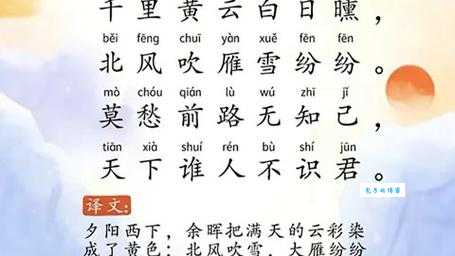 千里黄云白日曛，
běi fēng chuī yàn xuě fēn fēn
北风吹雁雪纷纷。
mò chóu qián lù wú zhī jǐ
莫愁前路无知己，
tiān xià shuí rén bù shí jūn
天下谁人不识君。
译文：
夕阳西下，余晖把满天的云彩染
成了黄色；北风吹雪，大雁纷纷